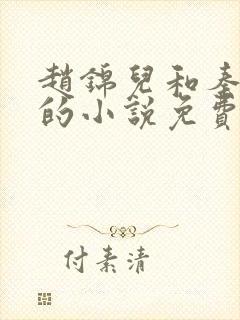 趙錦兒和秦
的小說免費
付素清